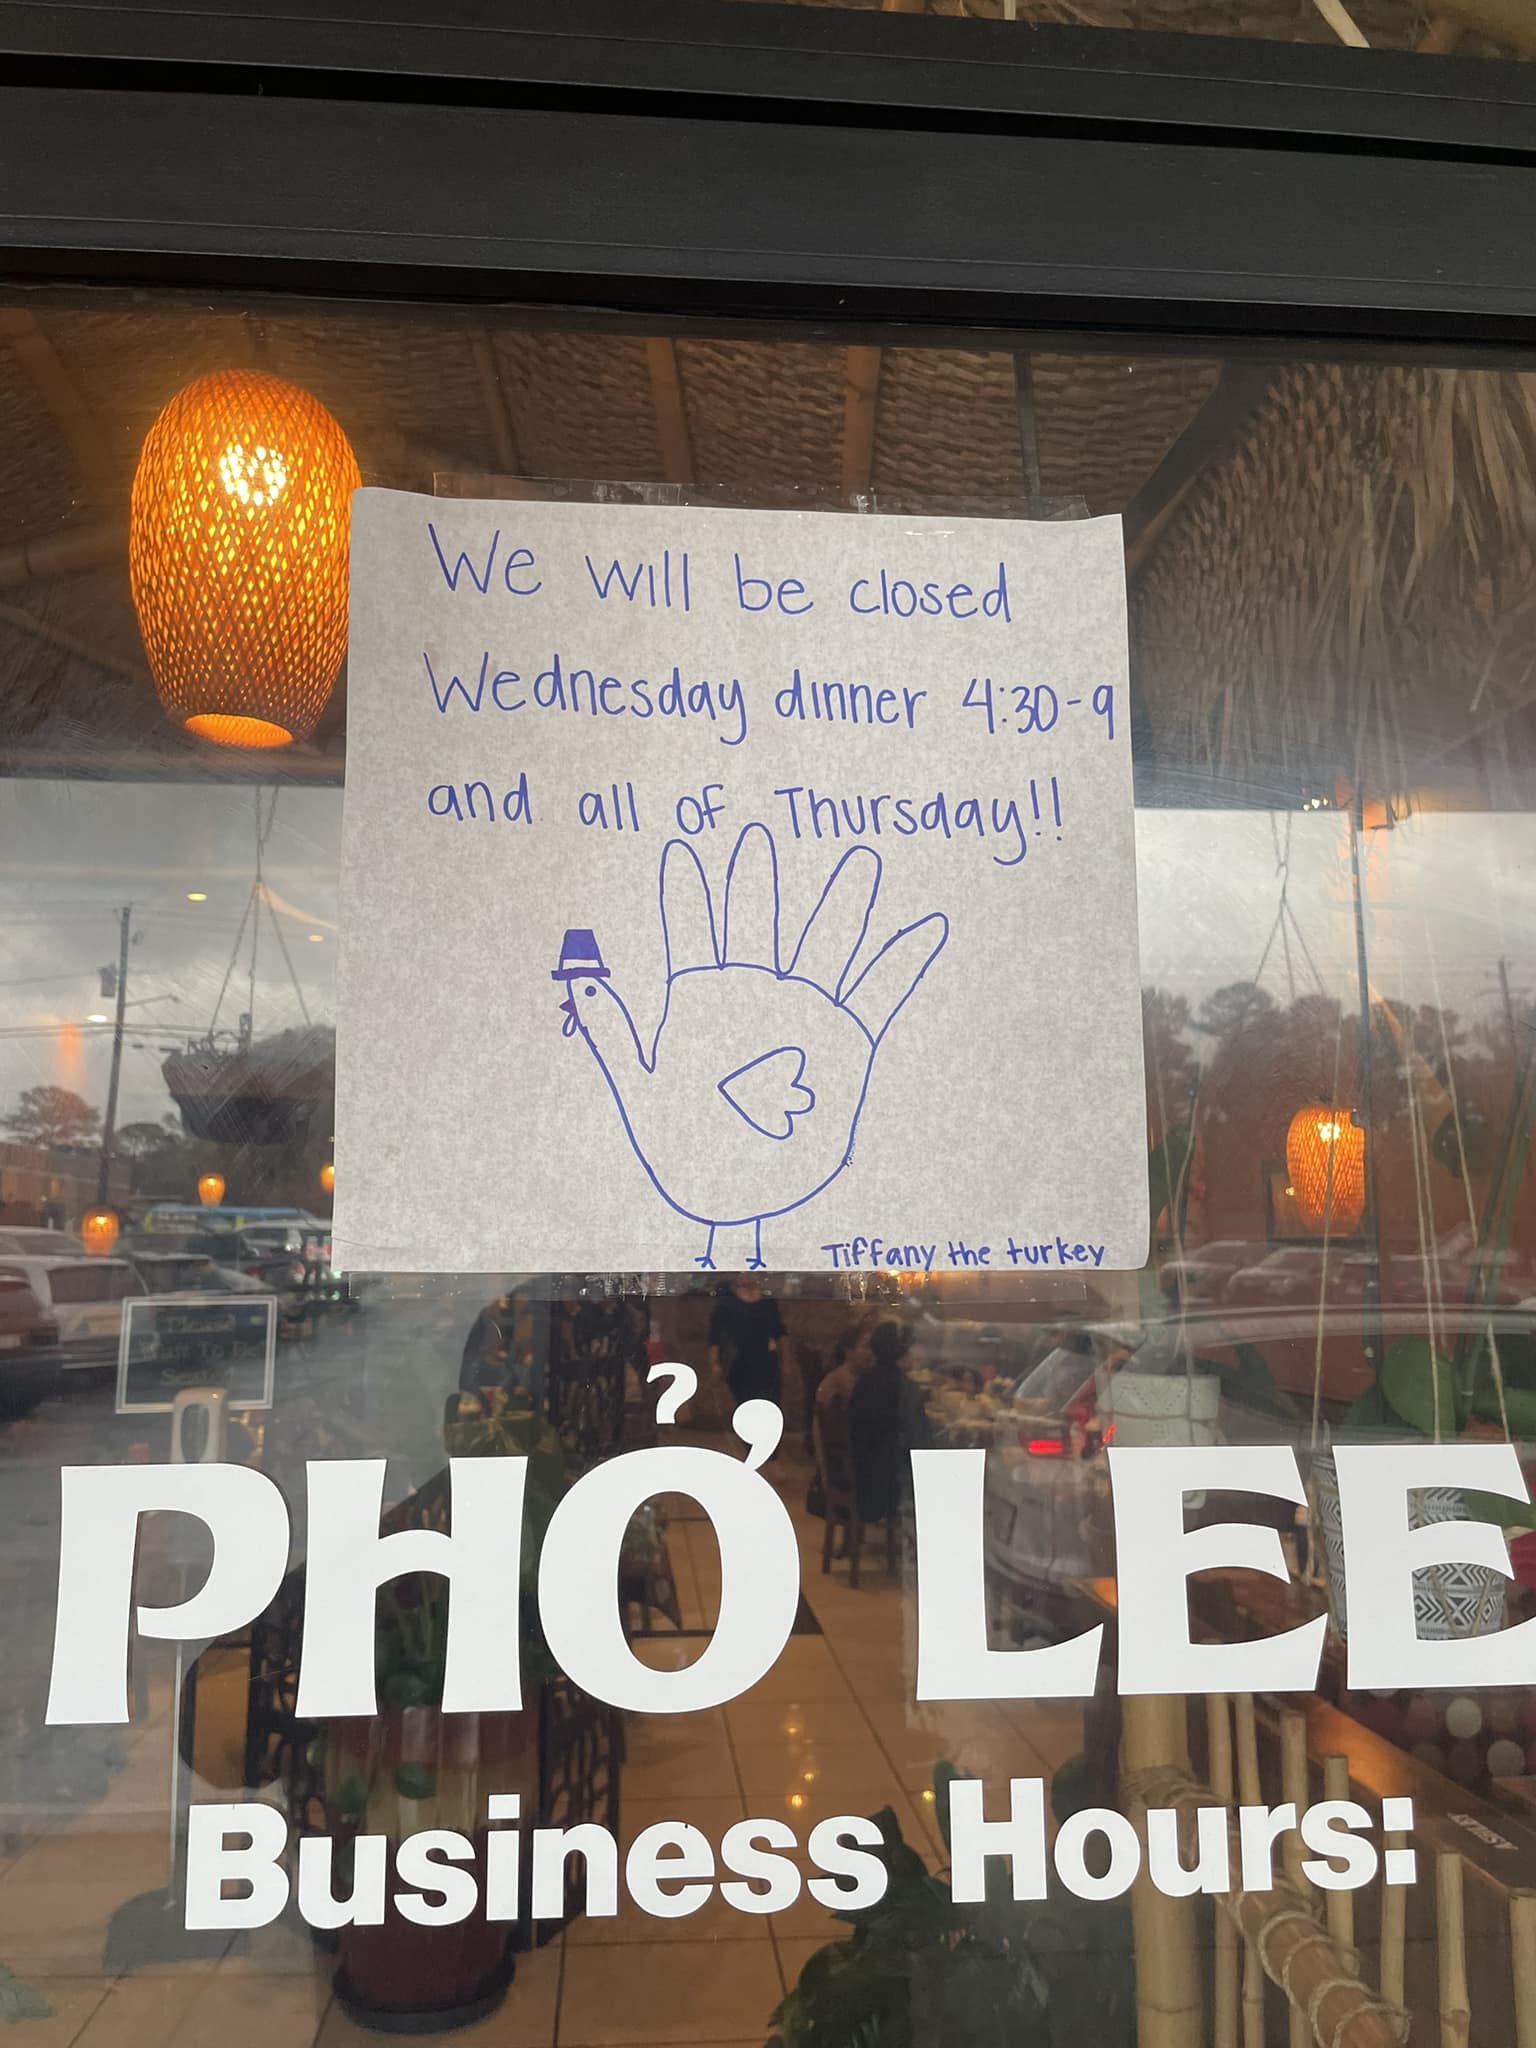 We will be closed
Wednesday dinner 4:30-9
and all of Thursday!!
Tiffany the turkey
Please
Wait To Be
Seated
PHỞ LEE
Business Hours: